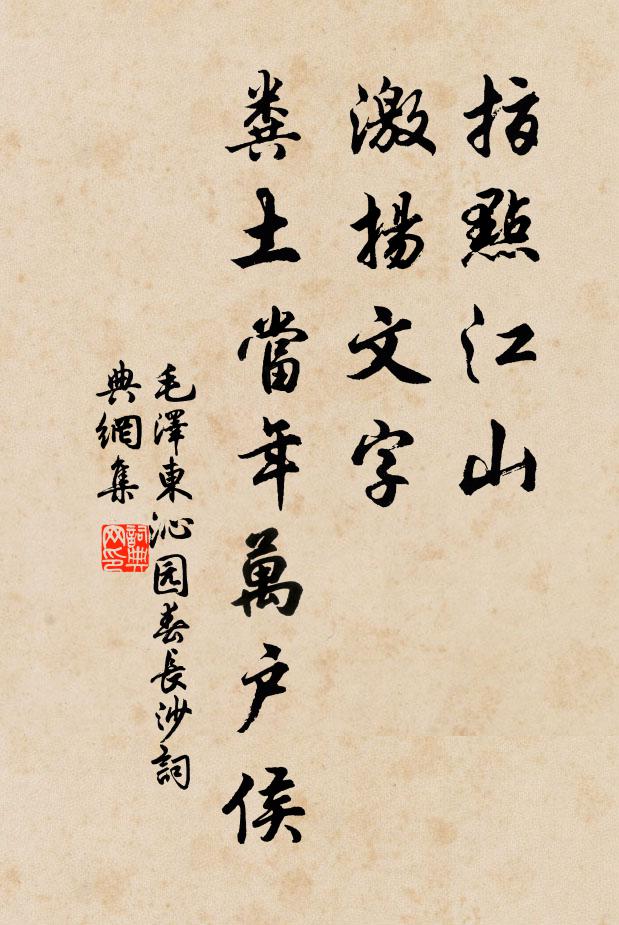 指點江山
激揚文字
糞土當年萬户侯
毛澤東沁园春長沙詞
典網集
詞典
网印